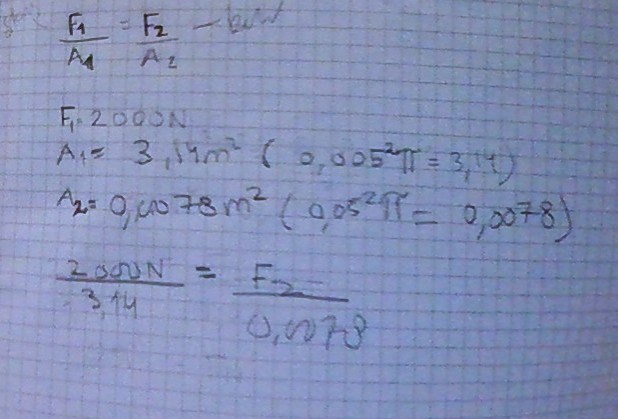 F1/A1 = F2/A2 –
F1= 2000N
A1= 3,14m² ( 0,005²π = 3,14)
A2= 0,0078m² ( 0,05²π = 0,0078)
2000N/3,14 = F2/0,0078